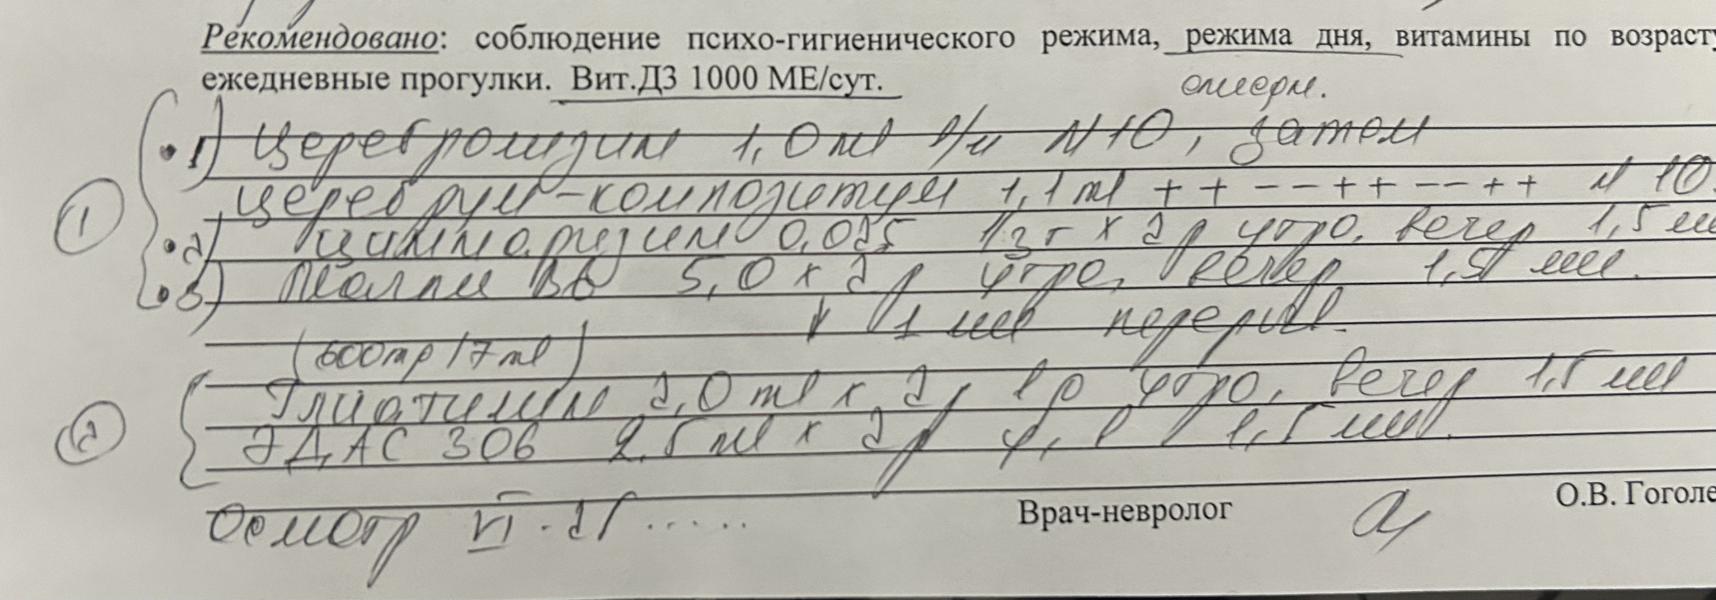 Рекомендовано: соблюдение психо-гигиенического режима, режима дня, витамины по возрасту
ежедневные прогулки. Вит.Д3 1000 МЕ/сут.
1) Церебролизин 1,0 ml в/м N10, затем
1 церебрум-композитум 1,1 ml + + – – + + – – + + N 10.
2) циннаризин 0,025 1/3 т х 2 р утро, вечер 1,5 ме
3) В6 5,0 х 2 р утро, вечер 1,5 мес.
↓ 1 мес перерыв.
(600mg/7ml)
2 Глиатилин 2,0 ml х 2 р утро, вечер 1,5 мес
ЭДАС 306 2,5 ml х 2 р у, в 1,5 мес.
Осмотр VI. 21 .....
Врач-невролог О.В. Гоголе